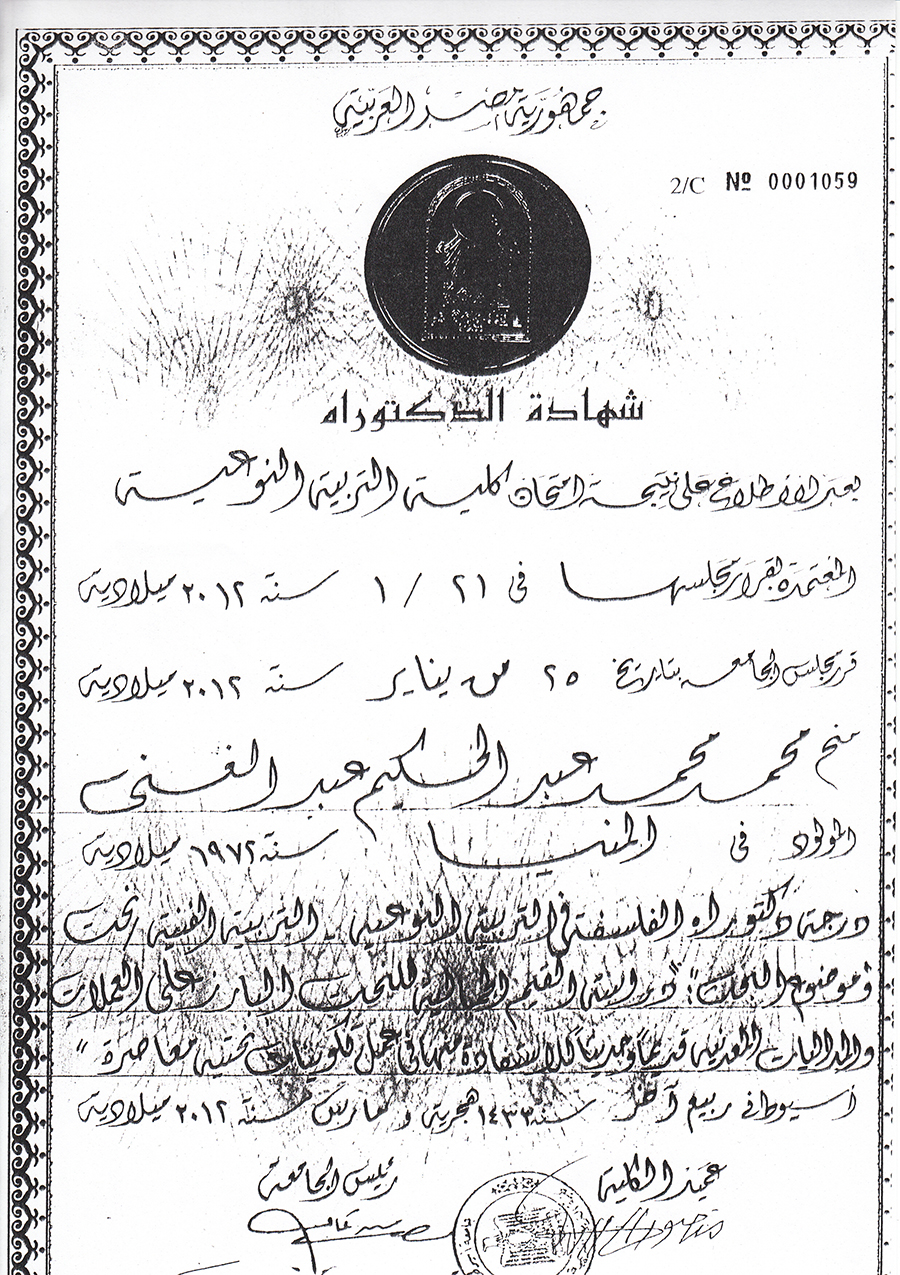 جمهورية مصر العربية
2/C Nº 0001059
شهادة الدكتوراه
بعد الاطلاع على نتيجة امتحان كلية التربية النوعية
المعتمدة بقرار مجلسها في ٢١ / ١ سنة ٢٠١٢ ميلادية
قرر مجلس الجامعة بتاريخ ٢٥ من يناير سنة ٢٠١٢ ميلادية
منح محمد محمد عبد الحكيم عبد الغنى
المولود في المنيا سنة ١٩٧٢ ميلادية
درجة دكتوراه الفلسفة في التربية النوعية - التربية الفنية نحت
وموضوع البحث: "دراسة القيم الجمالية للنحت البارز على العملات
والمداليات المعدنية قديماً وحديثاً للاستفادة منها في عمل تكوينات نحتية معاصرة"
أسيوط في ربيع آخر سنة ١٤٣٣ هجرية و مارس سنة ٢٠١٢ ميلادية
عميد الكلية رئيس الجامعة